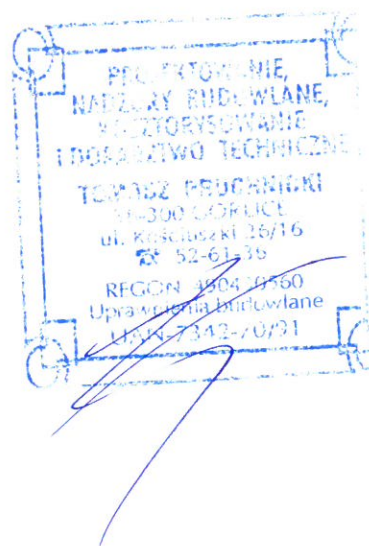 PROJEKTOWANIE,
NADZORY BUDOWLANE,
KOSZTORYSOWANIE
I DORADZTWO TECHNICZNE
PRUCHNICKI
38-300 GORLICE
ul. Kościuszki 26/16
☎ 52-61-36
REGON
Uprawnienia budowlane
UAN-7342-70/91